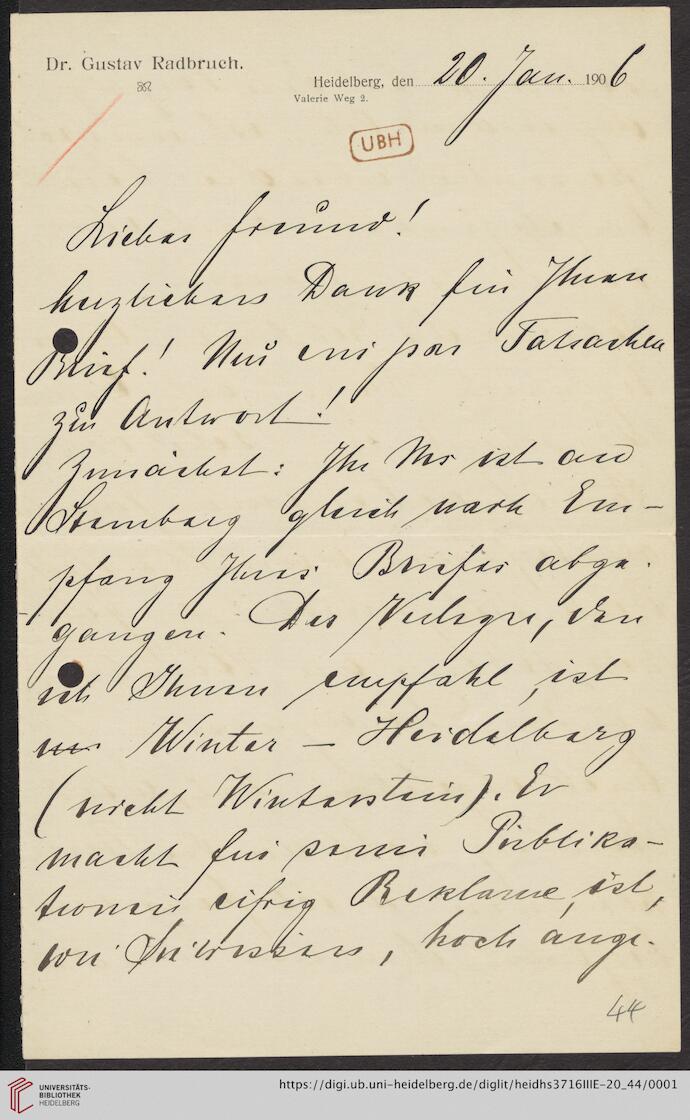 Dr. Gustav Radbruch.
Heidelberg, den 20. Jan. 1906
Valerie Weg 2.
UBH
Lieber Freund!
herzlichen Dank für Ihren
Brief! Nur ein paar Tatsachen
zur Antwort!
Zunächst: Ihr Ms ist an
Sternberg gleich nach Em-
pfang Ihres Briefes abge-
gangen. Der Verleger, den
ich Ihnen empfahl, ist
Winter – Heidelberg
(nicht Winterstein). Er
macht für seine Publika-
tionen eifrig Reklame, ist,
wie Sie wissen, hoch ange-
44
UNIVERSITÄTS-
BIBLIOTHEK
HEIDELBERG
https://digi.ub.uni-heidelberg.de/diglit/heidhs3716IIIE-20_44/0001